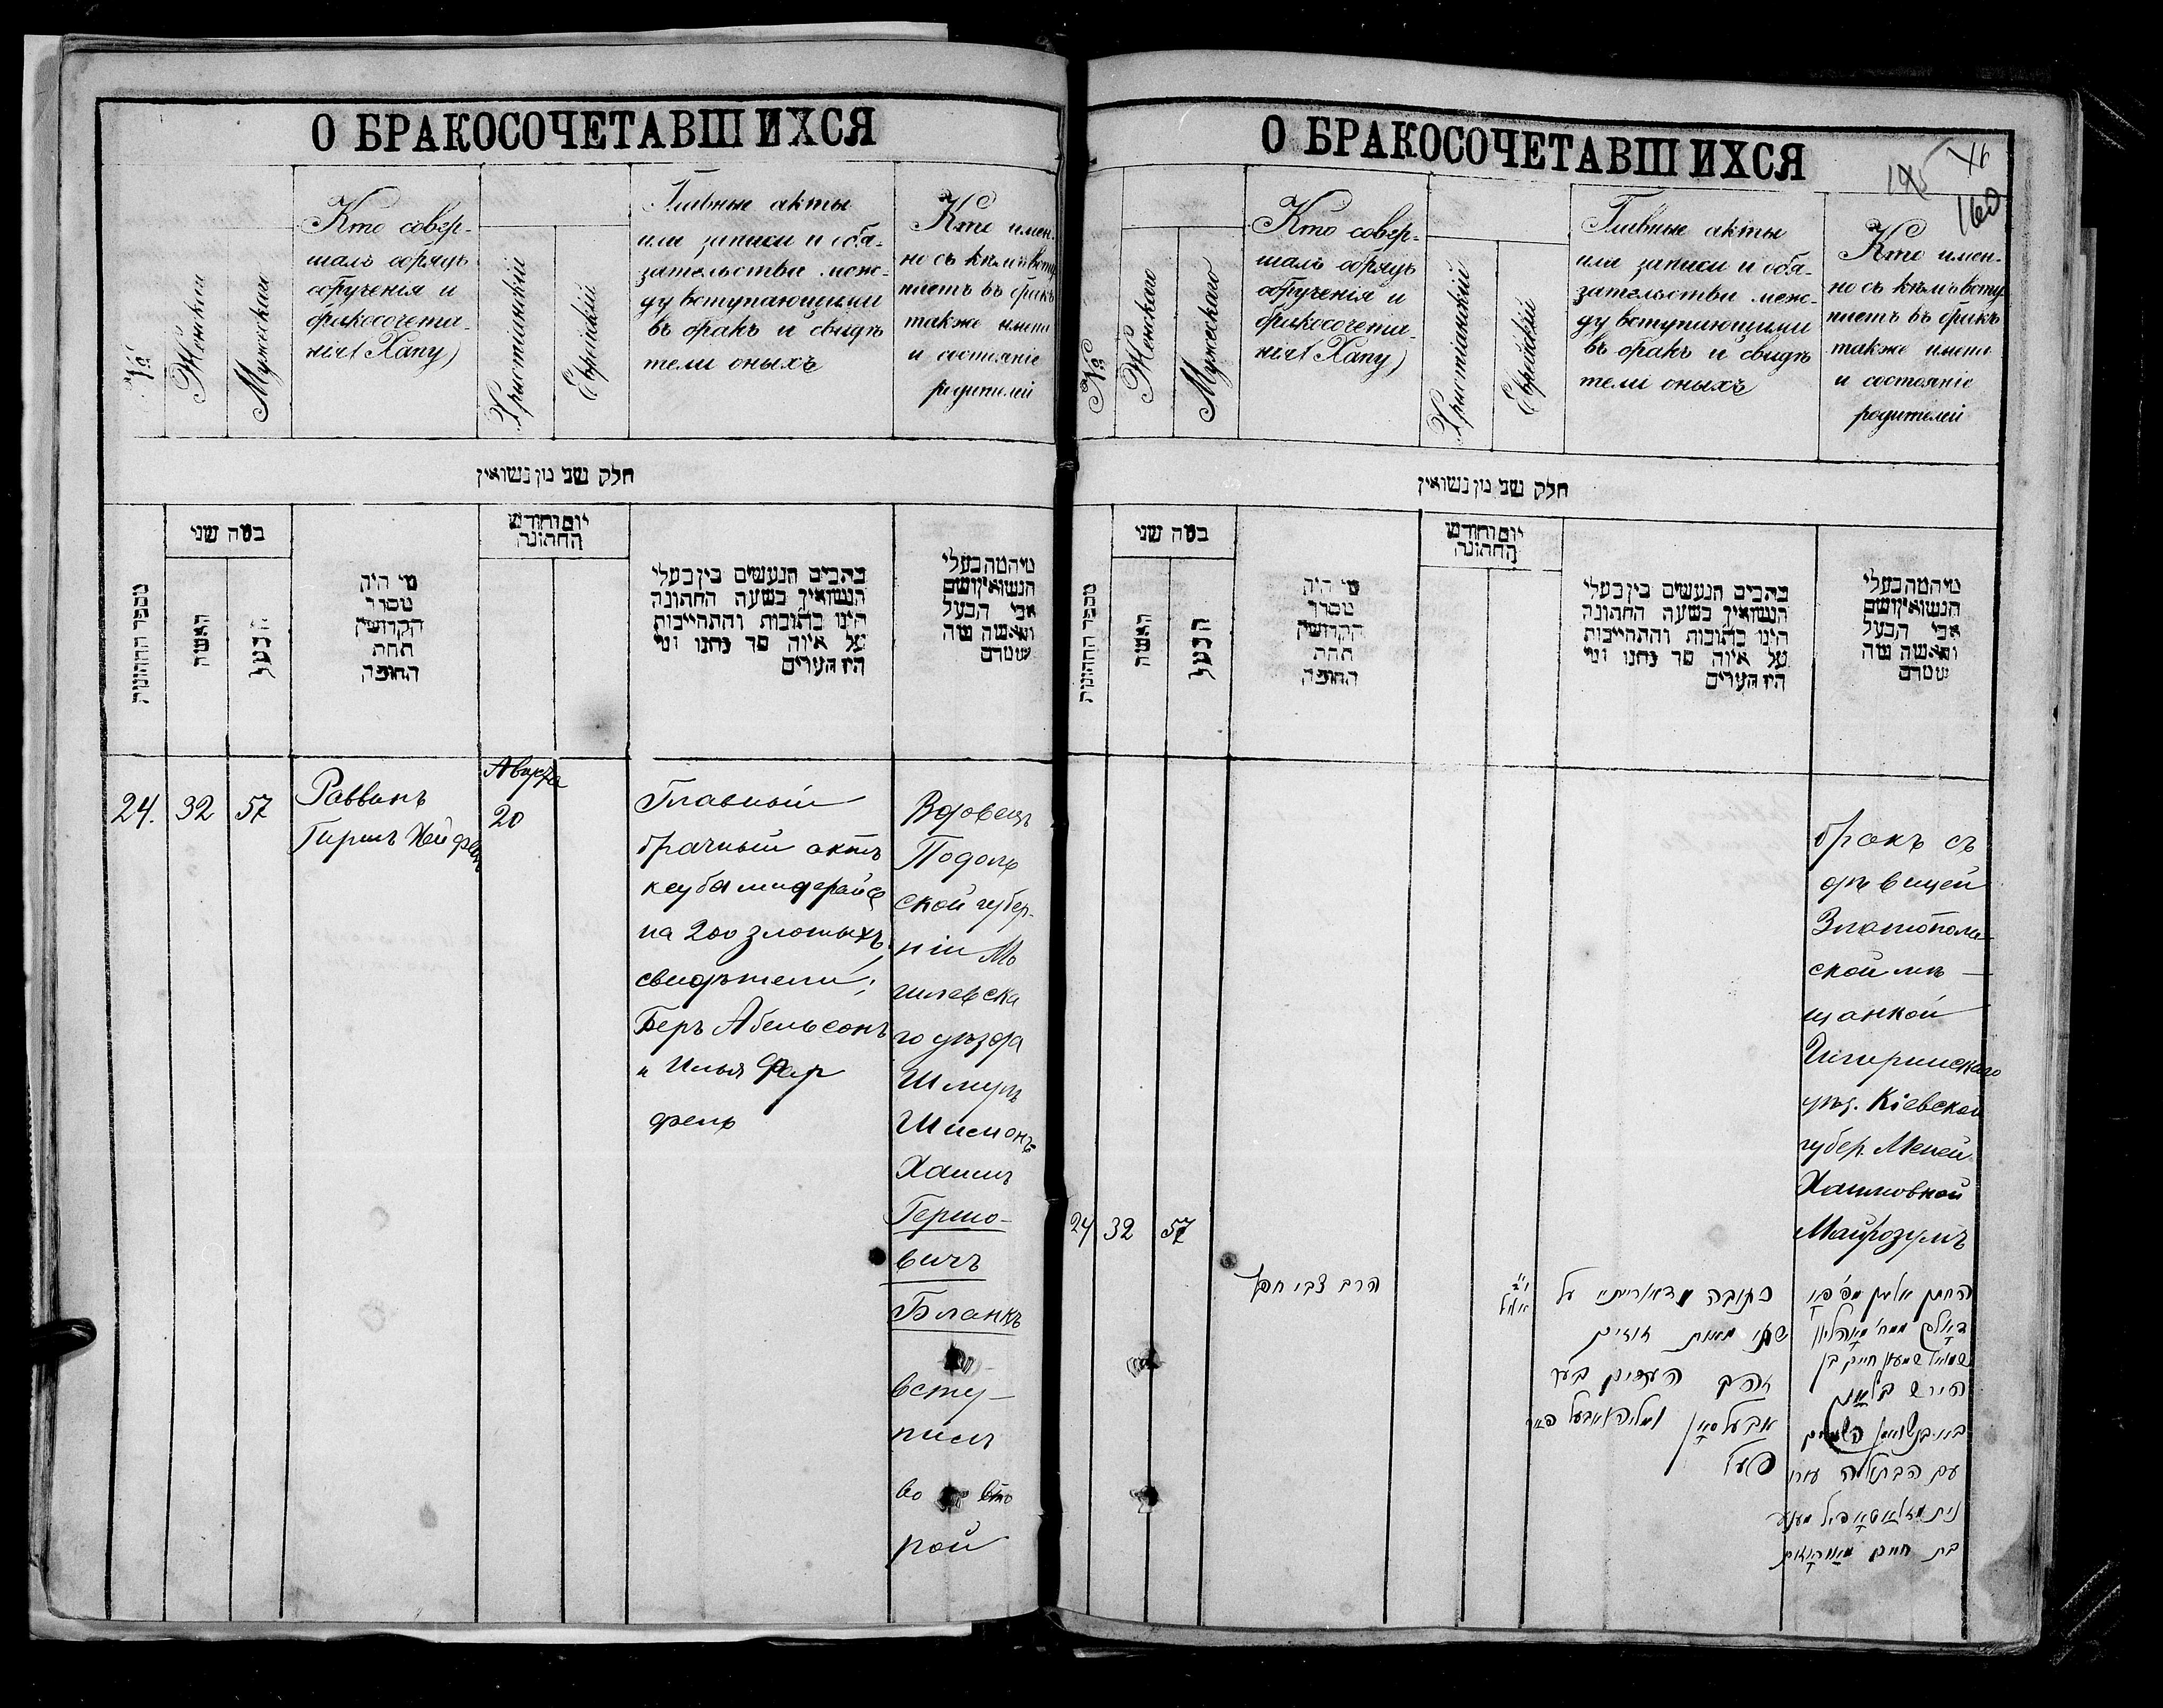 О БРАКОСОЧЕТАВШИХСЯ
№
Женскаго
Мужескаго
Кто совер-
шалъ обрядъ
обрученія и
бракосочета-
нія (Хапу)
Христіанскій
Еврейскій
Главные акты
или записи и обя-
зательства меж-
ду вступающими
въ бракъ и свидѣ
тели оныхъ
Кто имен-
но съ кѣмъ всту
паетъ въ бракъ
также имена
и состояніе
родителей
חלק שני מן נשואין
מספר החתונות
כמה שני
האשה
הבעל
מי היה
מסדר
הקדושין
תחת
החופה
יום וחודש
החתונה
כתבים הנעשים בין בעלי
הנשואין בשעה החתונה
היינו כתובות והתחייבות
על איזה סך נתנו ומי
היו העדים
מי המה בעלי
הנשואין ושם
אבי הבעל
והאשה
24.
32
57
Раввинъ
Гиршъ Хейфецъ
Августа
20
Главный
брачный актъ
ксуба мидерайсе
на 200 злотыхъ,
свидѣтели:
Беръ Абельсонъ
и Илья Фар
фель
Вдовецъ
Подоль
ской губер-
ніи Мо
гилевска
го уѣзда
Шмуль
Шимонъ
Хаимъ
Гершо-
вичъ
Бланкъ
всту-
пилъ
во вто
рой
О БРАКОСОЧЕТАВШИХСЯ
160
№
Женскаго
Мужескаго
Кто совер-
шалъ обрядъ
обрученія и
бракосочета-
нія (Хапу)
Христіанскій
Еврейскій
Главные акты
или записи и обя-
зательства меж-
ду вступающими
въ бракъ и свидѣ
тели оныхъ
Кто имен-
но съ кѣмъ всту
паетъ въ бракъ
также имена
и состояніе
родителей
חלק שני מן נשואין
מספר החתונות
כמה שני
האשה
הבעל
מי היה
מסדר
הקדושין
תחת
החופה
יום וחודש
החתונה
כתבים הנעשים בין בעלי
הנשואין בשעה החתונה
היינו כתובות והתחייבות
על איזה סך נתנו ומי
היו העדים
מי המה בעלי
הנשואין ושם
אבי הבעל
והאשה
бракъ съ
дѣвицей
Златополь-
ской мѣ-
щанкой
Чигиринскаго
уѣз. Кіевской
губер. Меней
Хаимовной
Майрозумъ
24
32
57
הרב צבי חפץ
אלול
כתובה מדאורייתא על
שתי מאות זוזים
זהב העדים בער
אבעלסאן
פעל
החתן אלמן
שמואל שמעון חיים בן
הירש בלאנק
עם הבתולה
בת חיים